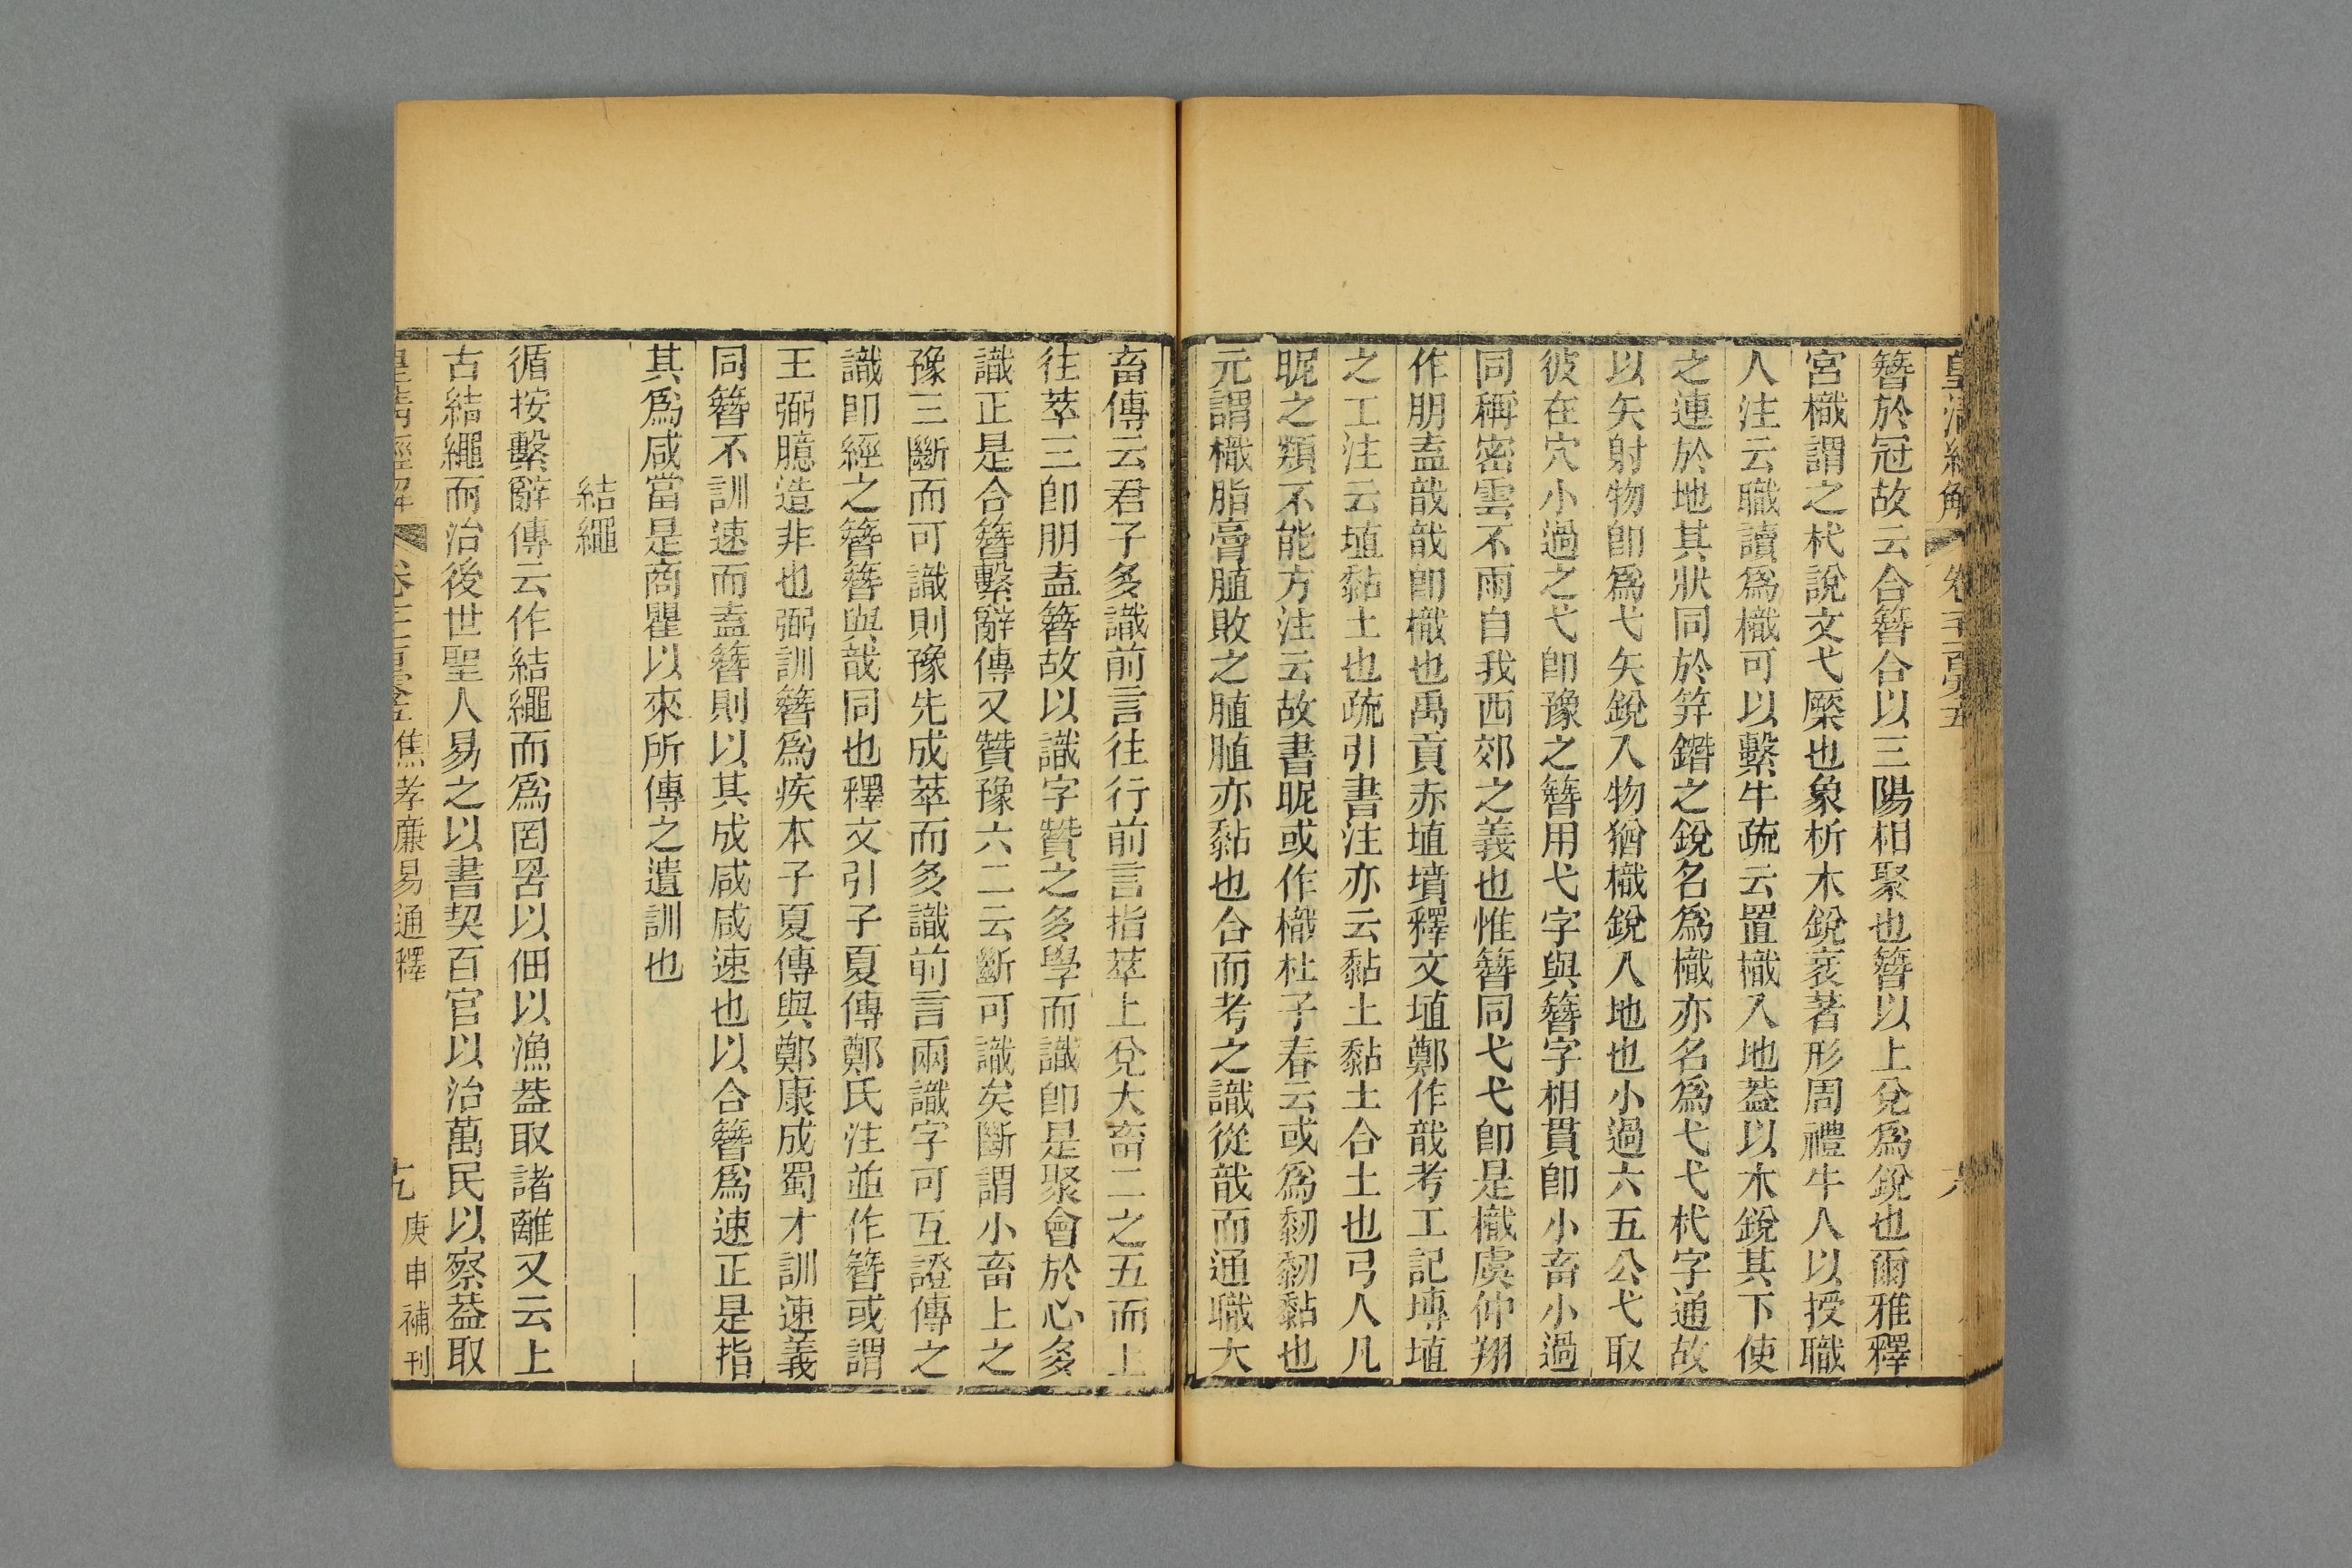 皇清經解 卷
簪於冠故云合簪合以三陽相聚也簪以上兌爲銳也爾雅釋
宮樴謂之杙說文弋橜也象析木銳衺著形周禮牛人以授職
人注云職讀爲樴可以繫牛疏云置樴入地葢以木銳其下使
之連於地其狀同於笄鐕之銳名爲樴亦名爲弋弋杙字通故
以矢射物卽爲弋矢銳入物猶樴銳入地也小過六五公弋取
彼在穴小過之弋卽豫之簪用弋字與簪字相貫卽小畜小過
同稱密雲不雨自我西郊之義也惟簪同弋弋卽是樴虞仲翔
作朋盍戠戠卽樴也禹貢赤埴墳釋文埴鄭作戠考工記塼埴
之工注云埴黏土也疏引書注亦云黏土黏土合土也弓人凡
昵之類不能方注云故書昵或作樴杜子春云或爲䵒䵒黏也
元謂樴脂膏䐈敗之䐈䐈亦黏也合而考之識從戠而通職大
畜傳云君子多識前言往行前言指萃上兌大畜二之五而上
往萃三卽朋盍簪故以識字贊之多學而識卽是聚會於心多
識正是合簪繫辭傳又贊豫六二云斷可識矣斷謂小畜上之
豫三斷而可識則豫先成萃而多識前言兩識字可互證傳之
識卽經之簪簪與戠同也釋文引子夏傳鄭氏注並作簪或謂
王弼臆造非也弼訓簪爲疾本子夏傳與鄭康成蜀才訓速義
同簪不訓速而盍簪則以其成咸咸速也以合簪爲速正是指
其爲咸當是商瞿以來所傳之遺訓也
結繩
循按繫辭傳云作結繩而爲罔罟以佃以漁葢取諸離又云上
古結繩而治後世聖人易之以書契百官以治萬民以察葢取
皇清經解 卷 焦孝廉易通釋 十九 庚申補刊